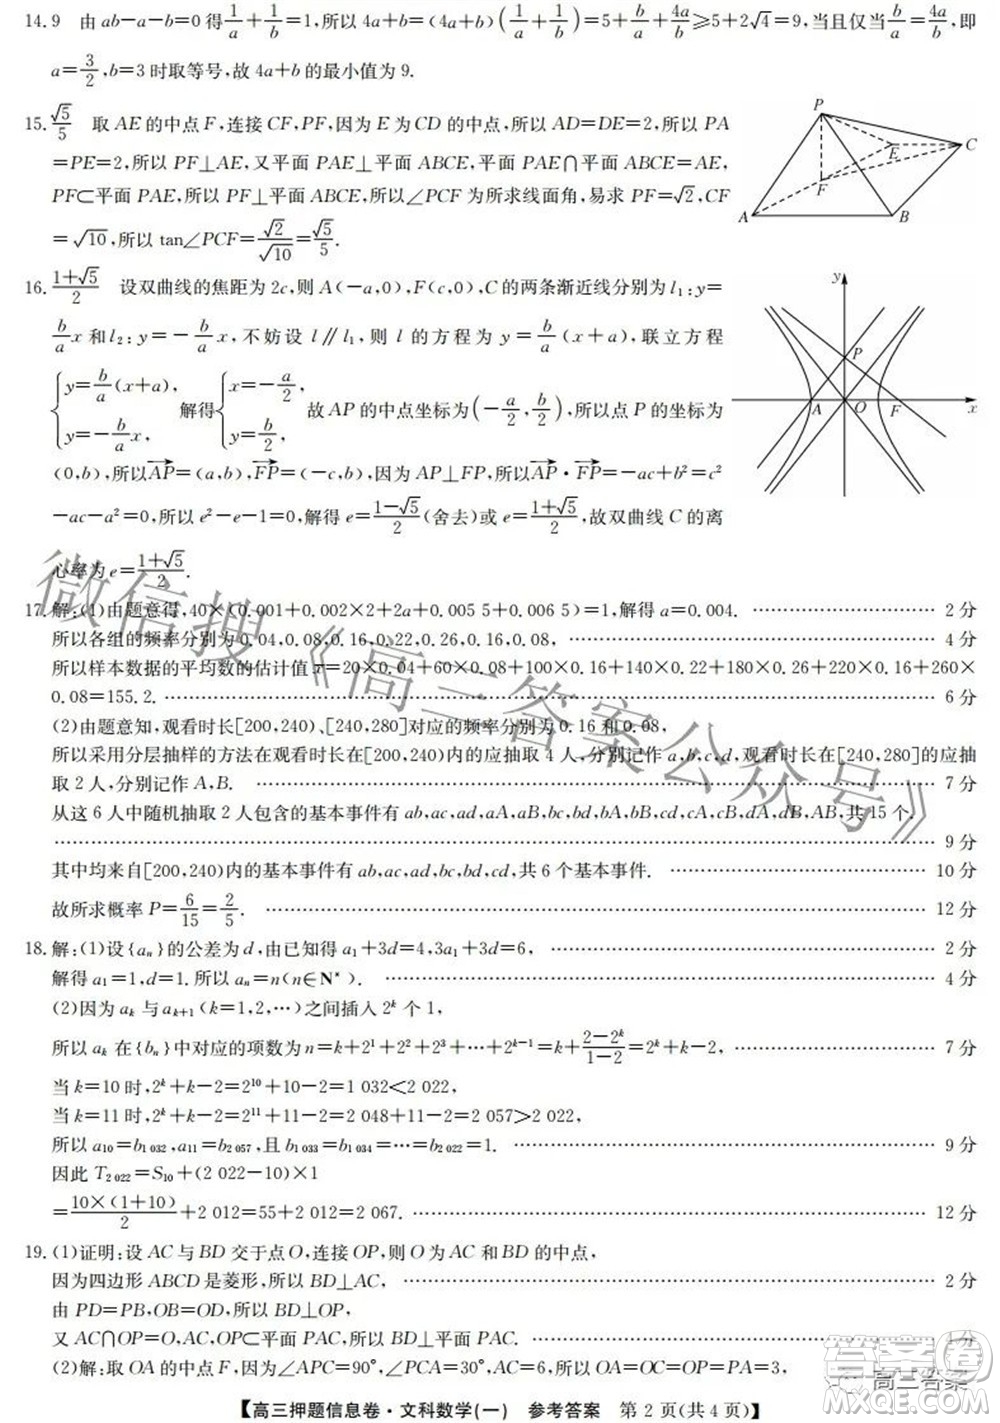 14. 9　由 ab−a−b=0 得 1/a+1/b=1,所以 4a+b=(4a+b)(1/a+1/b)=5+b/a+4a/b≥5+2√4=9,当且仅当 b/a=4a/b,即
a=3/2,b=3 时取等号,故 4a+b 的最小值为 9.
15. √5/5　取 AE 的中点 F,连接 CF,PF,因为 E 为 CD 的中点,所以 AD=DE=2,所以 PA
=PE=2,所以 PF⊥AE,又平面 PAE⊥平面 ABCE,平面 PAE∩平面 ABCE=AE,
PF⊂平面 PAE,所以 PF⊥平面 ABCE,所以∠PCF 为所求线面角,易求 PF=√2,CF
=√10,所以 tan∠PCF=√2/√10=√5/5.
P
E
C
F
A
B
16. (1+√5)/2　设双曲线的焦距为 2c,则 A(−a,0),F(c,0),C 的两条渐近线分别为 l₁:y=
b/a x 和 l₂:y=−b/a x,不妨设 l∥l₁,则 l 的方程为 y=b/a(x+a),联立方程
{y=b/a(x+a), y=−b/a x, 解得{x=−a/2, y=b/2, 故 AP 的中点坐标为(−a/2,b/2),所以点 P 的坐标为
(0,b),所以AP→=(a,b),FP→=(−c,b),因为 AP⊥FP,所以AP→·FP→=−ac+b²=c²
−ac−a²=0,所以 e²−e−1=0,解得 e=(1−√5)/2(舍去)或 e=(1+√5)/2,故双曲线 C 的离
心率为 e=(1+√5)/2.
y
P
A
O
F
x
17. 解:(1)由题意得,40×(0.001+0.002×2+2a+0.005 5+0.006 5)=1,解得 a=0.004. …… 2 分
所以各组的频率分别为 0.04,0.08,0.16,0.22,0.26,0.16,0.08, …… 4 分
所以样本数据的平均数的估计值 x̄=20×0.04+60×0.08+100×0.16+140×0.22+180×0.26+220×0.16+260×
0.08=155.2. …… 6 分
(2)由题意知,观看时长[200,240)、[240,280]对应的频率分别为 0.16 和 0.08,
所以采用分层抽样的方法在观看时长在[200,240)内的应抽取 4 人,分别记作 a,b,c,d,观看时长在[240,280]的应抽
取 2 人,分别记作 A,B. …… 7 分
从这 6 人中随机抽取 2 人包含的基本事件有 ab,ac,ad,aA,aB,bc,bd,bA,bB,cd,cA,cB,dA,dB,AB,共 15 个.
…… 9 分
其中均来自[200,240)内的基本事件有 ab,ac,ad,bc,bd,cd,共 6 个基本事件. …… 10 分
故所求概率 P=6/15=2/5. …… 12 分
18. 解:(1)设{aₙ}的公差为 d,由已知得 a₁+3d=4,3a₁+3d=6, …… 2 分
解得 a₁=1,d=1. 所以 aₙ=n(n∈N*). …… 4 分
(2)因为 aₖ 与 aₖ₊₁(k=1,2,…)之间插入 2ᵏ 个 1,
所以 aₖ 在{bₙ}中对应的项数为 n=k+2¹+2²+2³+…+2ᵏ⁻¹=k+(2−2ᵏ)/(1−2)=2ᵏ+k−2, …… 7 分
当 k=10 时,2ᵏ+k−2=2¹⁰+10−2=1 032<2 022,
当 k=11 时,2ᵏ+k−2=2¹¹+11−2=2 048+11−2=2 057>2 022,
所以 a₁₀=b₁ ₀₃₂,a₁₁=b₂ ₀₅₇,且 b₁ ₀₃₃=b₁ ₀₃₄=…=b₂ ₀₅₂=1. …… 9 分
因此 T₂ ₀₂₂=S₁₀+(2 022−10)×1
=10×(1+10)/2+2 012=55+2 012=2 067. …… 12 分
19. (1)证明:设 AC 与 BD 交于点 O,连接 OP,则 O 为 AC 和 BD 的中点,
因为四边形 ABCD 是菱形,所以 BD⊥AC, …… 2 分
由 PD=PB,OB=OD,所以 BD⊥OP,
又 AC∩OP=O,AC,OP⊂平面 PAC,所以 BD⊥平面 PAC. …… 4 分
(2)解:取 OA 的中点 F,因为∠APC=90°,AC=6,所以 OA=OP=PA=3,
【高三押题信息卷·文科数学(一)　参考答案　第 2 页(共 4 页)】
微信搜《高三答案公众号》
答案圈
高三答案